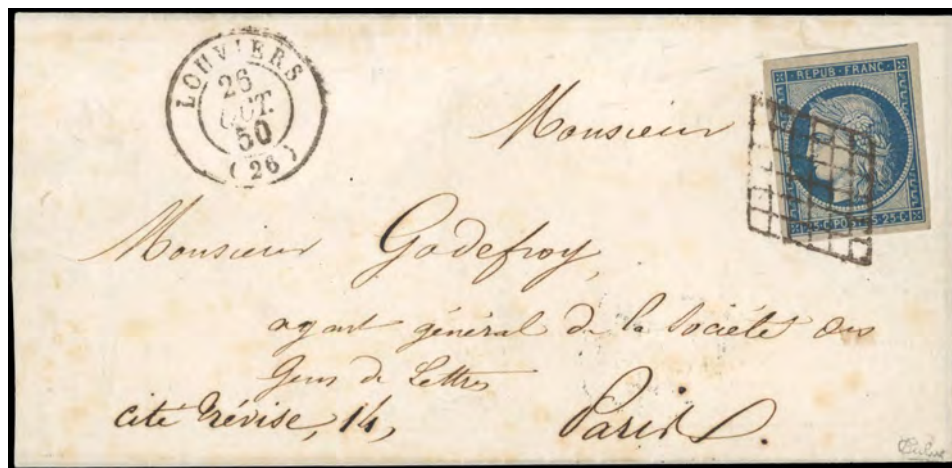 LOUVIERS
26
OCT.
50
(26)
REPUB·FRANC·
25·C·POSTES·25·C
Monsieur
Monsieur Godefroy,
agent général de la Société des
Gens de Lettres
cité Trévise, 14,
Paris.